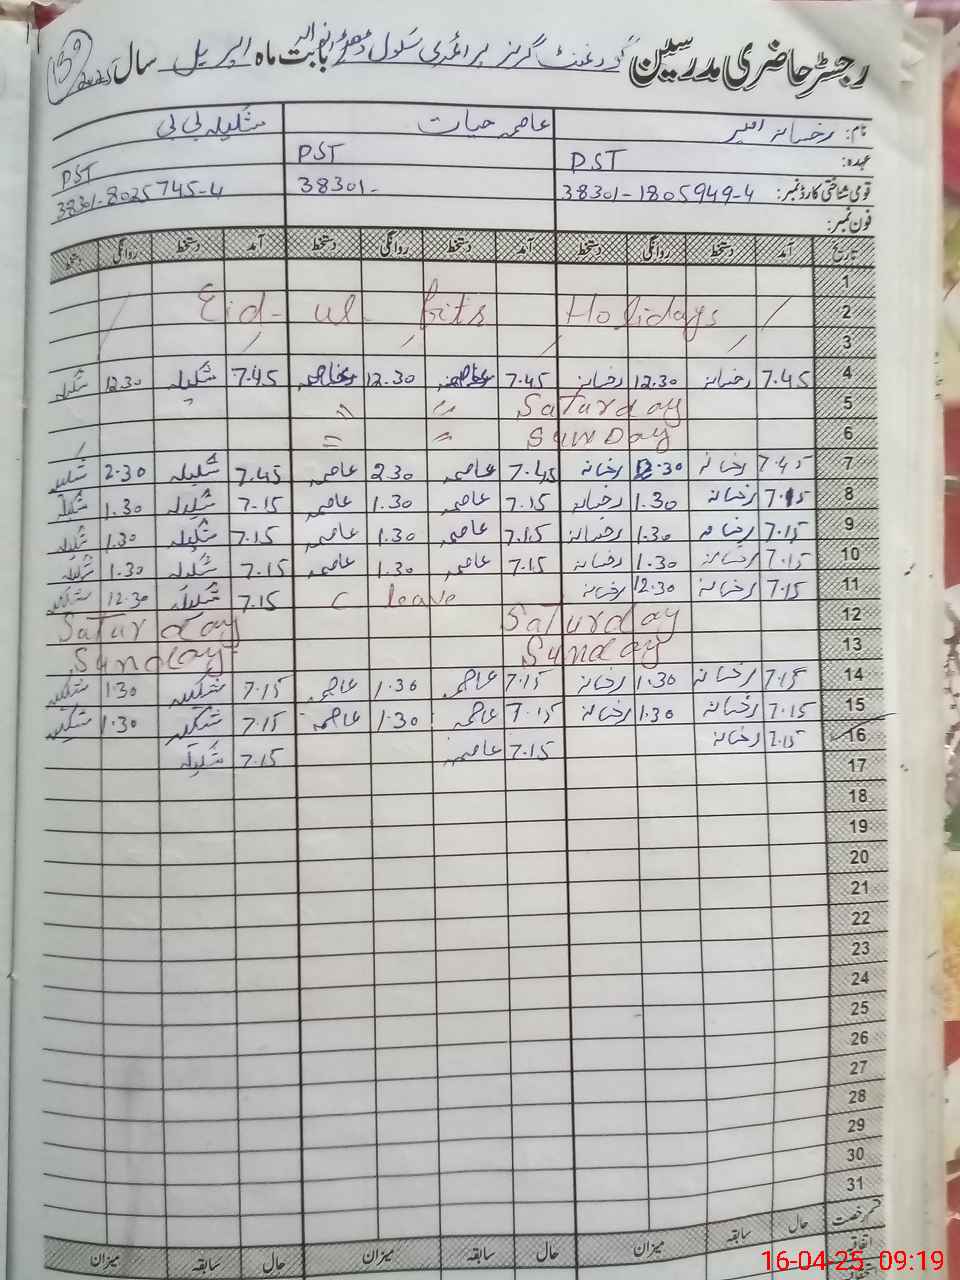 رجسٹر حاضری مدرسین گورنمنٹ گرلز پرائمری سکول بابت ماہ اپریل سال 2025
نام: رخسانہ امیر عاصمہ حیات شکیلہ بی بی
عہدہ: PST PST PST
قومی شناختی کارڈ نمبر: 38301-1805949-4 38301- 38301-8025745-4
فون نمبر:
تاریخ آمد دستخط روانگی دستخط آمد دستخط روانگی دستخط آمد دستخط روانگی دستخط
1
2 Eid-ul fits Holidays
3
4 7.45 رخسانہ 12.30 رخسانہ 7.45 12.30 7.45 شکیلہ 12.30 شکیلہ
5 Saturday 〃 〃
6 SUNDAY 〃 =
7 7.45 رخسانہ 12.30 رخسانہ 7.45 عاصمہ 2.30 عاصمہ 7.45 شکیلہ 2.30 شکیلہ
8 7.15 رخسانہ 1.30 رخسانہ 7.15 عاصمہ 1.30 عاصمہ 7.15 شکیلہ 1.30 شکیلہ
9 7.15 رخسانہ 1.30 رخسانہ 7.15 عاصمہ 1.30 عاصمہ 7.15 شکیلہ 1.30 شکیلہ
10 7.15 رخسانہ 1.30 رخسانہ 7.15 عاصمہ 1.30 عاصمہ 7.15 شکیلہ 1.30 شکیلہ
11 7.15 رخسانہ 12.30 رخسانہ leave 7.15 شکیلہ 12.30 شکیلہ
12 Saturday Saturday
13 Sunday Sunday
14 7.15 رخسانہ 1.30 رخسانہ 7.15 عاصمہ 1.30 عاصمہ 7.15 شکیلہ 1.30 شکیلہ
15 7.15 رخسانہ 1.30 رخسانہ 7.15 عاصمہ 1.30 عاصمہ 7.15 شکیلہ 1.30 شکیلہ
16 7.15 رخسانہ 7.15 عاصمہ 7.15 شکیلہ
17
18
19
20
21
22
23
24
25
26
27
28
29
30
31
قسم رخصت حال سابقہ میزان حال سابقہ میزان حال سابقہ میزان
اتفاقیہ
16-04-25 09:19